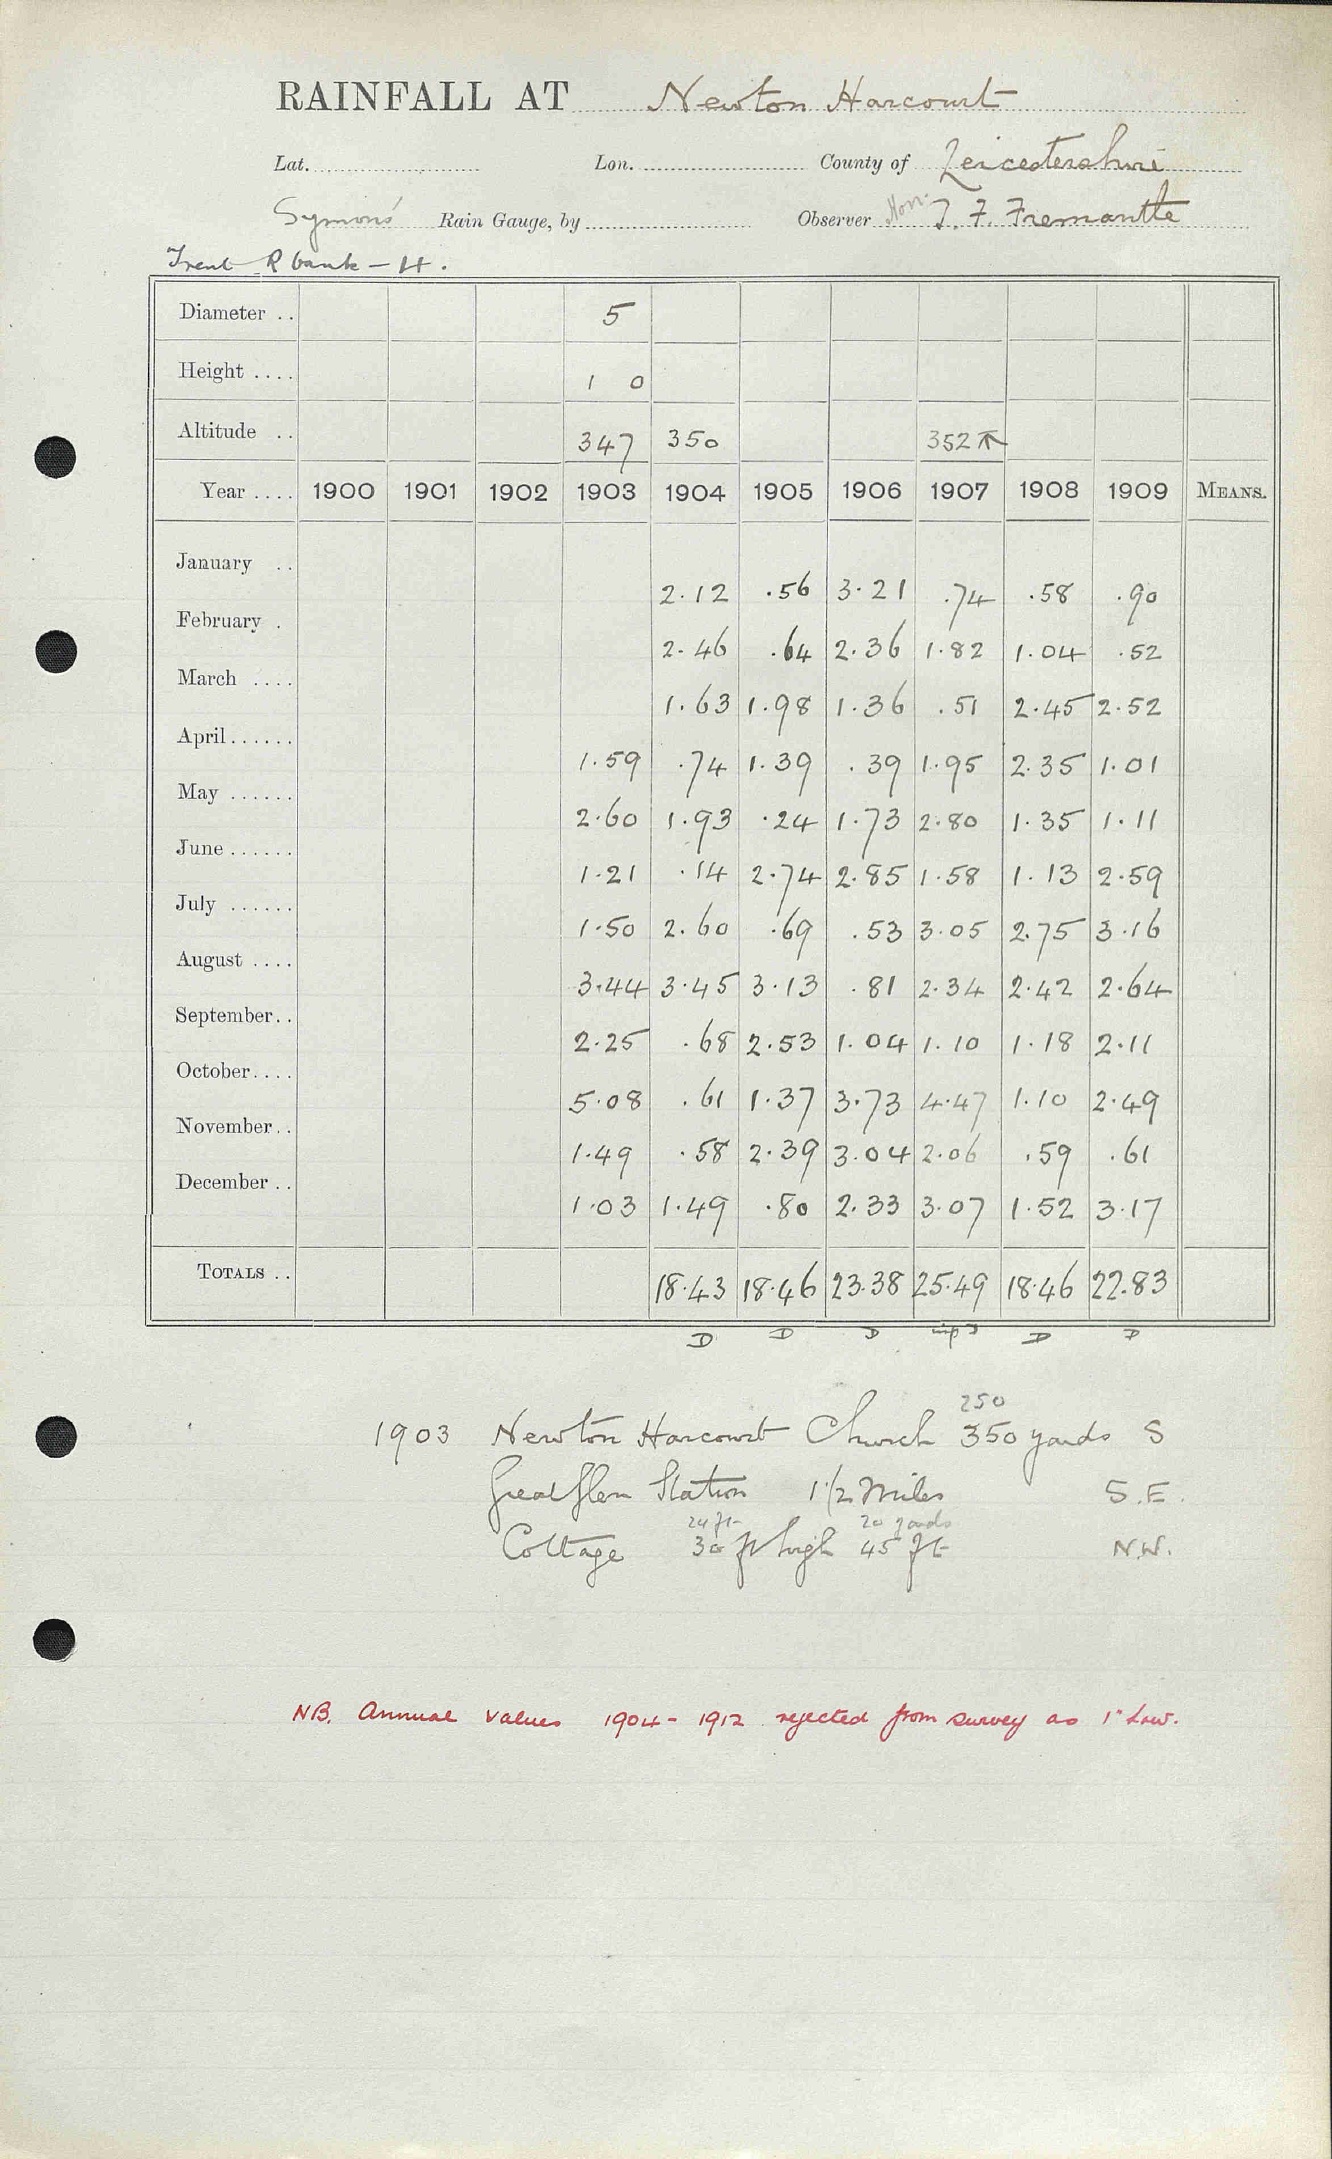 RAINFALL AT Newton Harcourt
Lat. Lon. County of Leicestershire
Symons' Rain Gauge, by Observer Hon. T. F. Fremantle
Trent R bank – H.
Diameter .. 5
Height .... 1 0
Altitude .. 347 350 352
Year .... 1900 1901 1902 1903 1904 1905 1906 1907 1908 1909 MEANS.
January .. 2.12 .56 3.21 .74 .58 .90
February . 2.46 .64 2.36 1.82 1.04 .52
March .... 1.63 1.98 1.36 .51 2.45 2.52
April...... 1.59 .74 1.39 .39 1.95 2.35 1.01
May ...... 2.60 1.93 .24 1.73 2.80 1.35 1.11
June...... 1.21 .14 2.74 2.85 1.58 1.13 2.59
July ...... 1.50 2.60 .69 .53 3.05 2.75 3.16
August .... 3.44 3.45 3.13 .81 2.34 2.42 2.64
September.. 2.25 .68 2.53 1.04 1.10 1.18 2.11
October.... 5.08 .61 1.37 3.73 4.47 1.10 2.49
November.. 1.49 .58 2.39 3.04 2.06 .59 .61
December .. 1.03 1.49 .80 2.33 3.07 1.52 3.17
TOTALS .. 18.43 18.46 23.38 25.49 18.46 22.83
D D D D D
250
1903 Newton Harcourt Church 350 yards S
Great Glen Station 1 1/2 Miles S.E.
24 ft 20 yards
Cottage 30 ft high 45 ft N.W.
NB. Annual values 1904 - 1912 rejected from survey as 1" low.